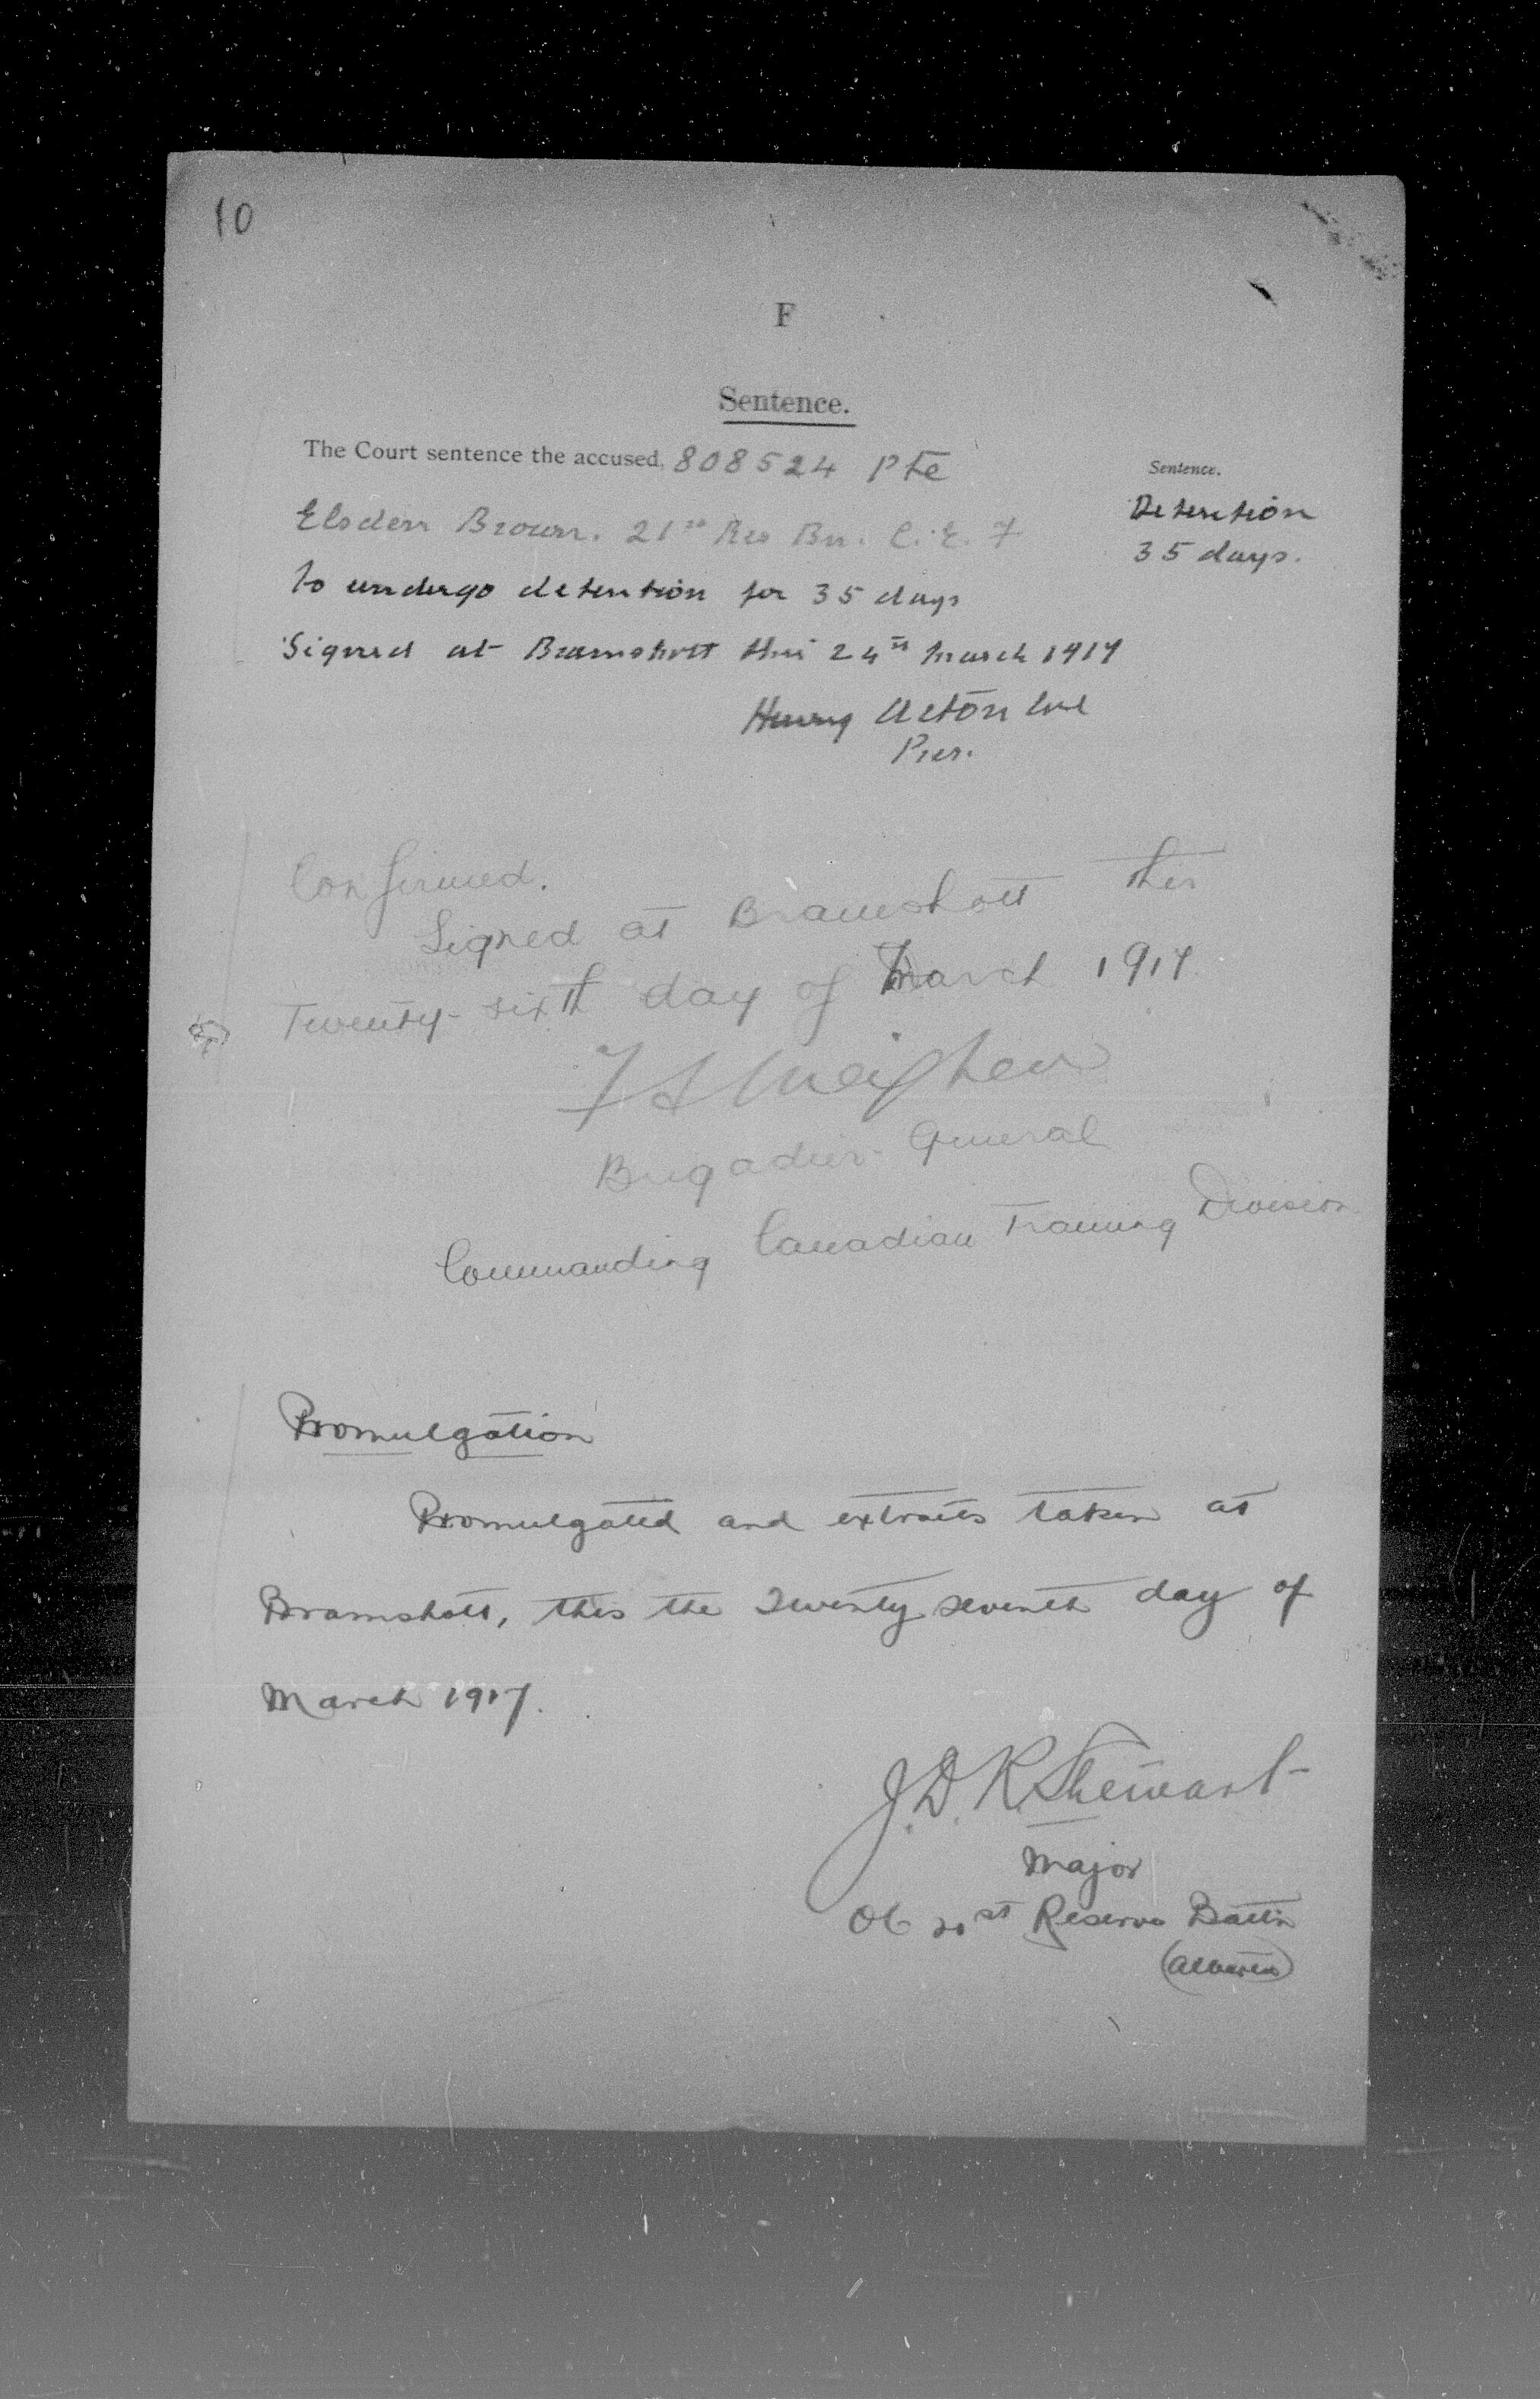 10
F
Sentence.
The Court sentence the accused, 808524 Pte
Elsden Brown. 21st Res Bn. C.E.F
to undergo detention for 35 days
Signed at Bramshott this 24th March 1917
Henry Acton Col
Pres.
Sentence.
Detention
35 days.
Confirmed.
Signed at Bramshott this
Twenty-sixth day of March 1917.
F S Meighen
Brigadier-General
Commanding Canadian Training Division.
Promulgation
Promulgated and extracts taken at
Bramshott, this the Twenty seventh day of
March 1917.
J.D.R. Stewart
Major
OC 21st Reserve Battn
(Alberta)